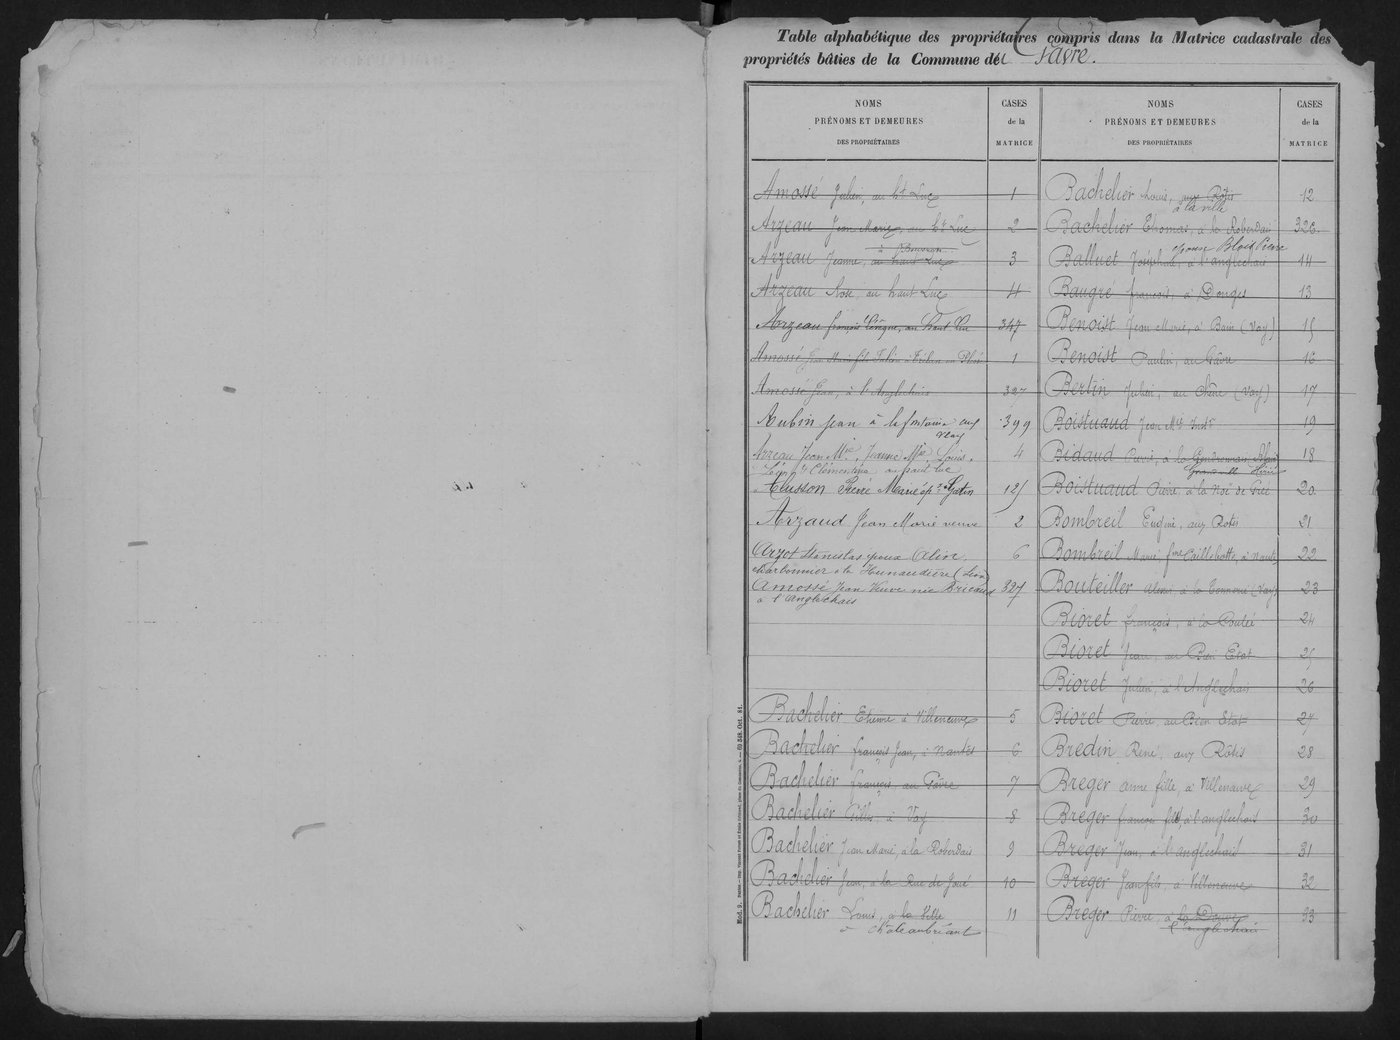 Table alphabétique des propriétaires compris dans la Matrice cadastrale des
propriétés bâties de la Commune du Gavre.
NOMS
PRÉNOMS ET DEMEURES
DES PROPRIÉTAIRES
CASES
de la
MATRICE
Amossé Julien, au Ht Luc 1
Arzeau Jean Marie, au Ht Luc 2
Arzeau Jeanne, au haut Luc 3
Arzeau Rose, au haut Luc 4
Arzeau françois, au haut Luc 347
Amossé Jean Marie fils 1
Amossé Jean, à l'Anglechais 327
Aubin Jean à la fontaine 399
Vay
Arzeau Jean Mie, Jeanne Mie, Louis,
Clémentine au haut luc 4
Husson Pierre Marie ép. Gatin 125
Arzaud Jean Marie veuve 2
Stanislas époux Alin 6
charbonnier à la Hunaudière
Amossé Jean Veuve née Bricaud 327
à l'Anglechais
Bachelier Etienne à Villeneuve 5
Bachelier françois Jean, à Nantes 6
Bachelier françois au Gâvre 7
Bachelier Gilles à Vay 8
Bachelier Jean Marie, à la Roberdais 9
Bachelier Jean, à la Rue de Joué 10
Bachelier Louis, à la Ville 11
à Chateaubriant
Mod. 9.
NOMS
PRÉNOMS ET DEMEURES
DES PROPRIÉTAIRES
CASES
de la
MATRICE
Bachelier Louis, aux Rôtis 12
à la ville
Bachelier Thomas, à la Roberdais 326
épouse Blois Pierre
Balluet Joséphine, à l'anglechais 14
Baugré françois, à Donges 13
Benoist Jean Marie, à Bain (Vay) 15
Benoist Paulin, au Gâvre 16
Bertin Julien, au Chêne (Vay) 17
Boistuaud Jean Mie 19
Bidaud Pierre, à la 18
Boistuaud Pierre, à la Noë de 20
Bombreil Eugène, aux Rôtis 21
Bombreil Marie fme, à Nantes 22
Bouteiller Alexis à la (Vay) 23
Bioret françois, à la 24
Bioret Jean, au Bon Etat 25
Bioret Julien, à l'Anglechais 26
Bioret Pierre, au Bon Etat 27
Bredin René, aux Rôtis 28
Breger anne fille, à Villeneuve 29
Breger françois fils, à l'anglechais 30
Breger Jean, à l'anglechais 31
Breger Jean fils, à Villeneuve 32
Breger Pierre, à la 33
l'anglechais